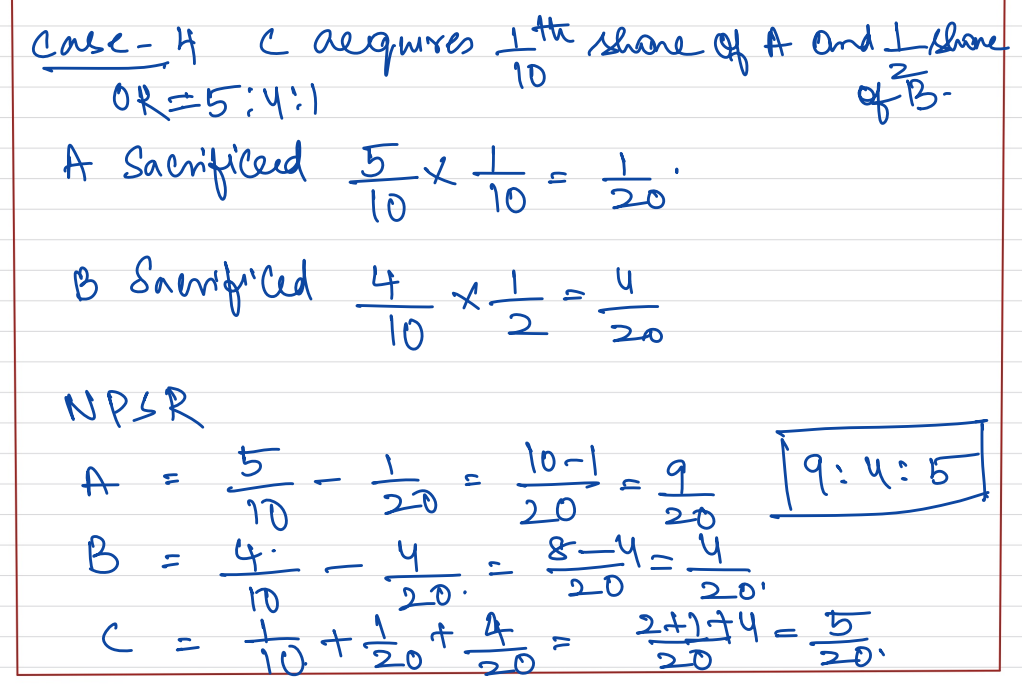 Case-4 C acquires 1/10th share of A and 1/2 share
of B.
OR=5:4:1
A Sacrificed 5/10 × 1/10 = 1/20.
B Sacrificed 4/10 × 1/2 = 4/20
NPSR
A = 5/10 - 1/20 = 10-1/20 = 9/20
9:4:5
B = 4/10 - 4/20. = 8-4/20 = 4/20.
C = 1/10. + 1/20 + 4/20 = 2+1+4/20 = 5/20.